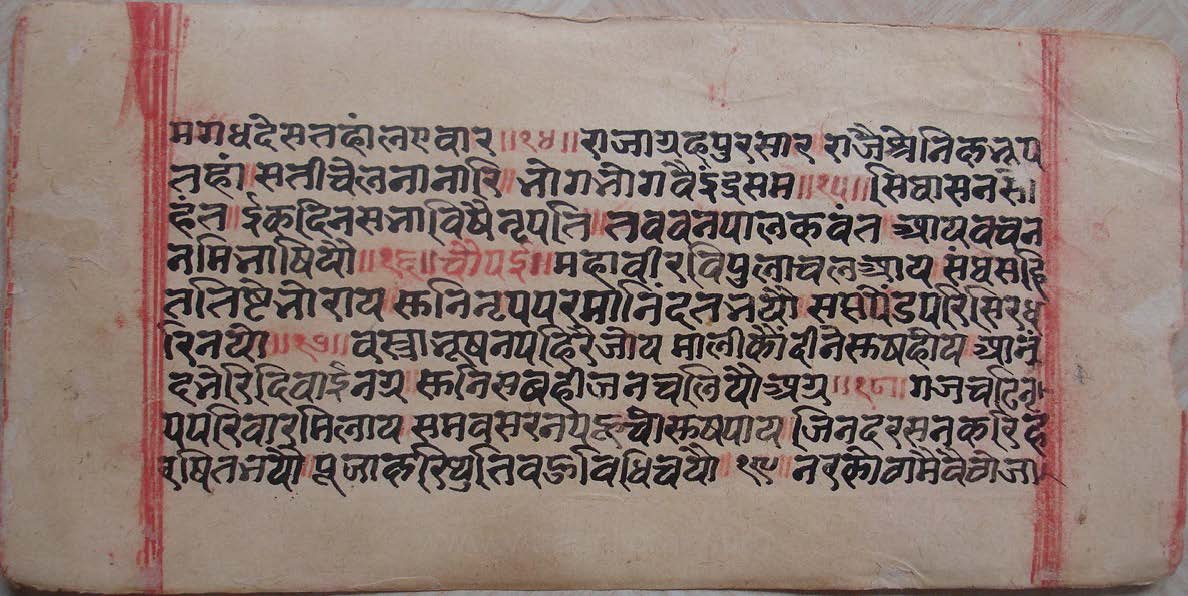 मगधदेसतहांलएवार ॥१४॥ राजाग्रहपुरसार राजैश्रेनिकनृप
तहां ॥ सतीचेलनानारि ॥ भोगभोगवैइंद्रसम ॥१५॥ सिंघासनसो
हंत ॥ ईकदिनसभाविषैनृपति ॥ तबवनपालकवंत आयवचन
नमिभाषियौ ॥१६॥ चौपई ॥ महावीरविपुलाचलआय संघसहि
ततिष्टेभोराय सुनिनृपपरमानिंदतभयौ सप्तपैंडपरिसिरध
रिनयो ॥१७॥ वस्त्राभूषनपहिरैजोय मालीकौंदीनेसुषहोय आनं
दभेरिदिवाईनग्र सुनिसबहीजनचलियौअग्र ॥१८॥ गजचढिनृ
पपरिवारमिलाय समवसरनपहूच्यौसुषपाय जिनदरसनकरिह
रषितभयौ पूजाकरिथुतिबहुविधिचयौ १९॥ नरकोठामैबैठोजा